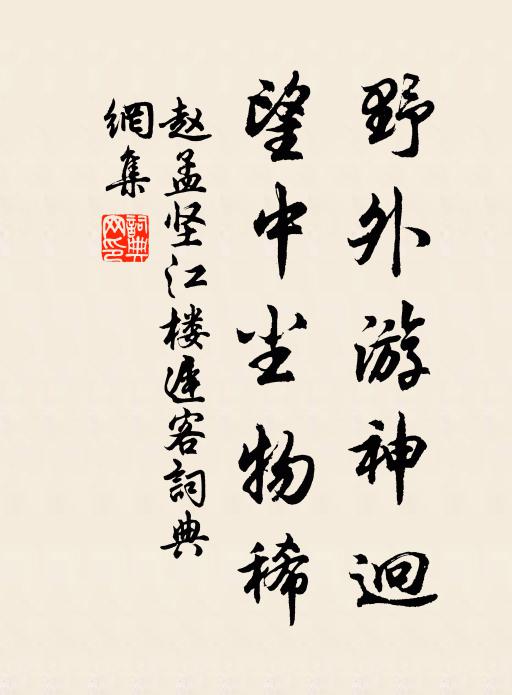 野外游神迥
望中尘物稀
赵孟坚江楼遲客詞典
網集
詞典网印